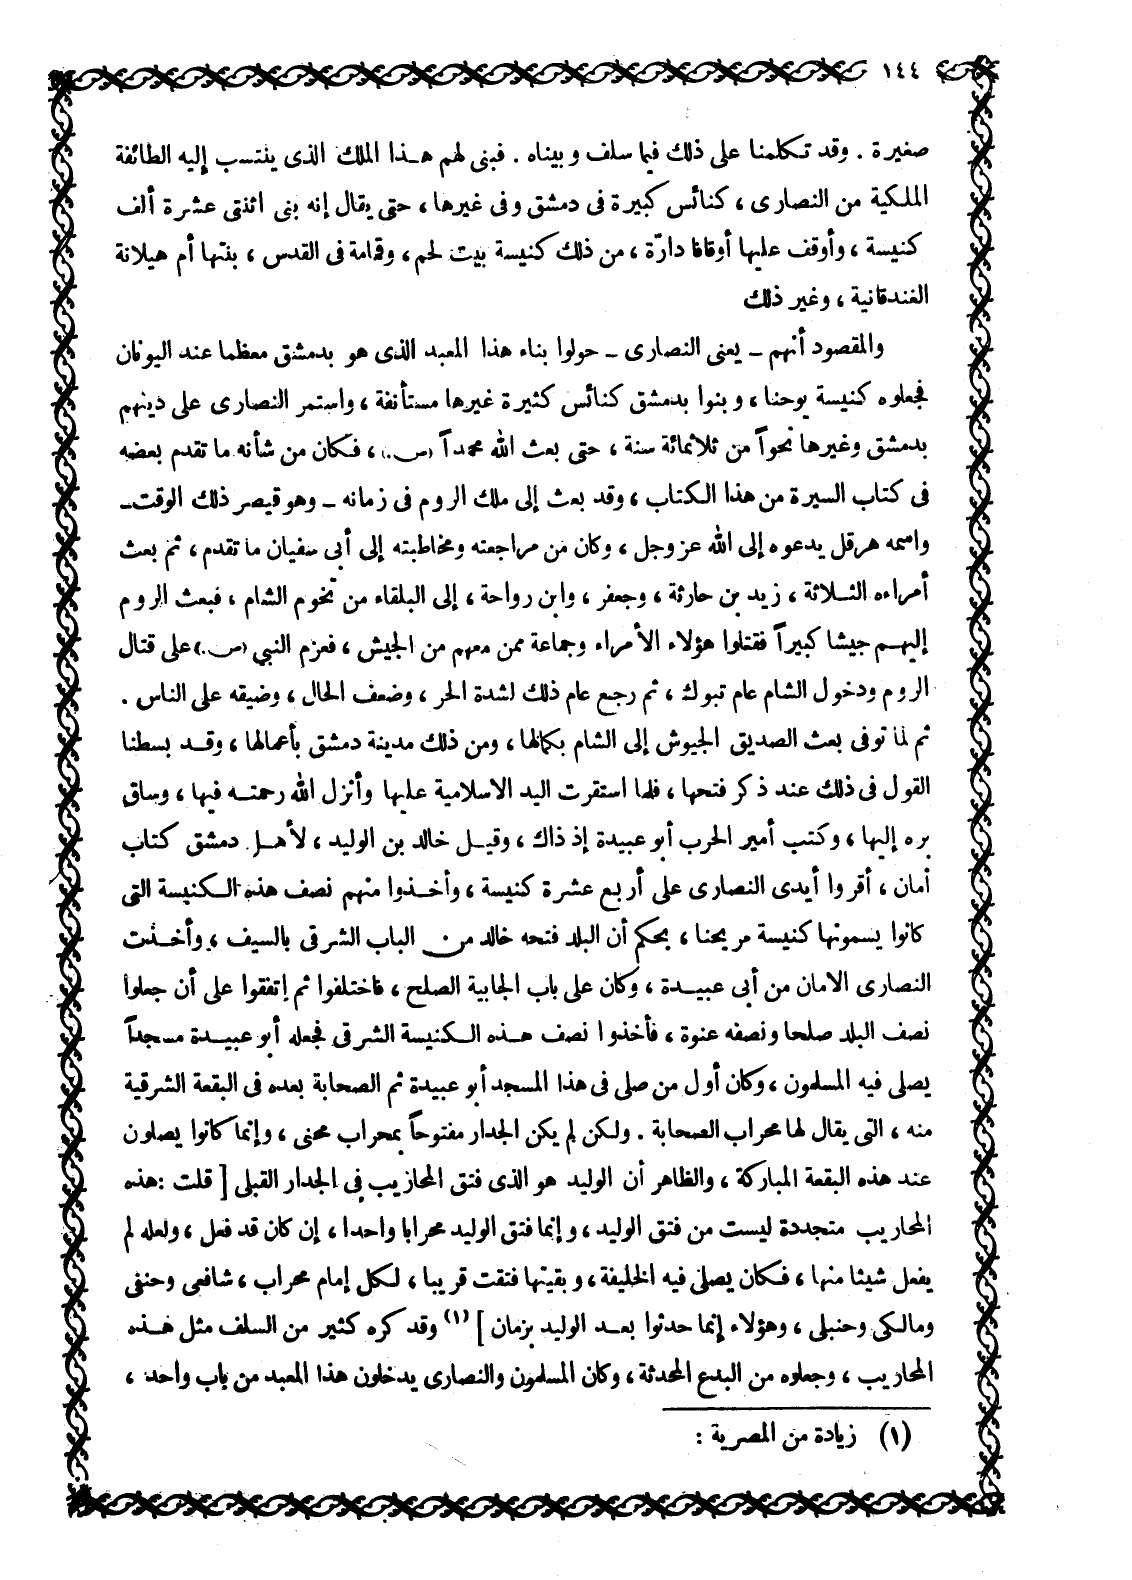 ١٤٤
صغيرة . وقد تكلمنا على ذلك فيما سلف وبيناه . فبنى لهم هذا الملك الذى ينتسب إليه الطائفة
الملكية من النصارى ، كنائس كبيرة فى دمشق وفى غيرها ، حتى يقال إنه بنى اثنتى عشرة ألف
كنيسة ، وأوقف عليها أوقافا دارّة ، من ذلك كنيسة بيت لحم ، وقمامة فى القدس ، بنتها أم هيلانة
الغندقانية ، وغير ذلك
والمقصود أنهم ــ يعنى النصارى ــ حولوا بناء هذا المعبد الذى هو بدمشق معظما عند اليونان
فجعلوه كنيسة يوحنا ، وبنوا بدمشق كنائس كثيرة غيرها مستأنفة ، واستمر النصارى على دينهم
بدمشق وغيرها نحواً من ثلاثمائة سنة ، حتى بعث الله محمداً (س.) ، فكان من شأنه ما تقدم بعضه
فى كتاب السيرة من هذا الكتاب ، وقد بعث إلى ملك الروم فى زمانه ــ وهو قيصر ذلك الوقت ــ
واسمه هرقل يدعوه إلى الله عز وجل ، وكان من مراجعته ومخاطبته إلى أبى سفيان ما تقدم ، ثم بعث
أمراءه الثلاثة ، زيد بن حارثة ، وجعفر ، وابن رواحة ، إلى البلقاء من تخوم الشام ، فبعث الروم
إليهم جيشا كبيراً فقتلوا هؤلاء الأمراء وجماعة ممن معهم من الجيش ، فعزم النبي (س.) على قتال
الروم ودخول الشام عام تبوك ، ثم رجع عام ذلك لشدة الحر ، وضعف الحال ، وضيقه على الناس .
ثم لما توفى بعث الصديق الجيوش إلى الشام بكمالها ، ومن ذلك مدينة دمشق بأعمالها ، وقد بسطنا
القول فى ذلك عند ذكر فتحها ، فلما استقرت اليد الاسلامية عليها وأنزل الله رحمته فيها ، وساق
بره إليها ، وكتب أمير الحرب أبو عبيدة إذ ذاك ، وقيل خالد بن الوليد ، لأهل دمشق كتاب
أمان ، أقروا أيدى النصارى على أربع عشرة كنيسة ، وأخذوا منهم نصف هذه الكنيسة التى
كانوا يسمونها كنيسة مريحنا ، بحكم أن البلد فتحه خالد من الباب الشرقى بالسيف ، وأخذت
النصارى الامان من أبى عبيدة ، وكان على باب الجابية الصلح ، فاختلفوا ثم إتفقوا على أن جعلوا
نصف البلد صلحا ونصفه عنوة ، فأخذوا نصف هذه الكنيسة الشرقى فجعله أبو عبيدة مسجداً
يصلى فيه المسلمون ، وكان أول من صلى فى هذا المسجد أبو عبيدة ثم الصحابة بعده فى البقعة الشرقية
منه ، التى يقال لها محراب الصحابة . ولكن لم يكن الجدار مفتوحاً بمحراب محنى ، وإنما كانوا يصلون
عند هذه البقعة المباركة ، والظاهر أن الوليد هو الذى فتق المحاريب فى الجدار القبلى [ قلت : هذه
المحاريب متجددة ليست من فتق الوليد ، وإنما فتق الوليد محرابا واحدا ، إن كان قد فعل ، ولعله لم
يفعل شيئا منها ، فكان يصلى فيه الخليفة ، وبقيتها فتقت قريبا ، لكل إمام محراب ، شافعى وحنفى
ومالكى وحنبلى ، وهؤلاء إنما حدثوا بعد الوليد بزمان ] (١) وقد كره كثير من السلف مثل هذه
المحاريب ، وجعلوه من البدع المحدثة ، وكان المسلمون والنصارى يدخلون هذا المعبد من باب واحد ،
(١) زيادة من المصرية :